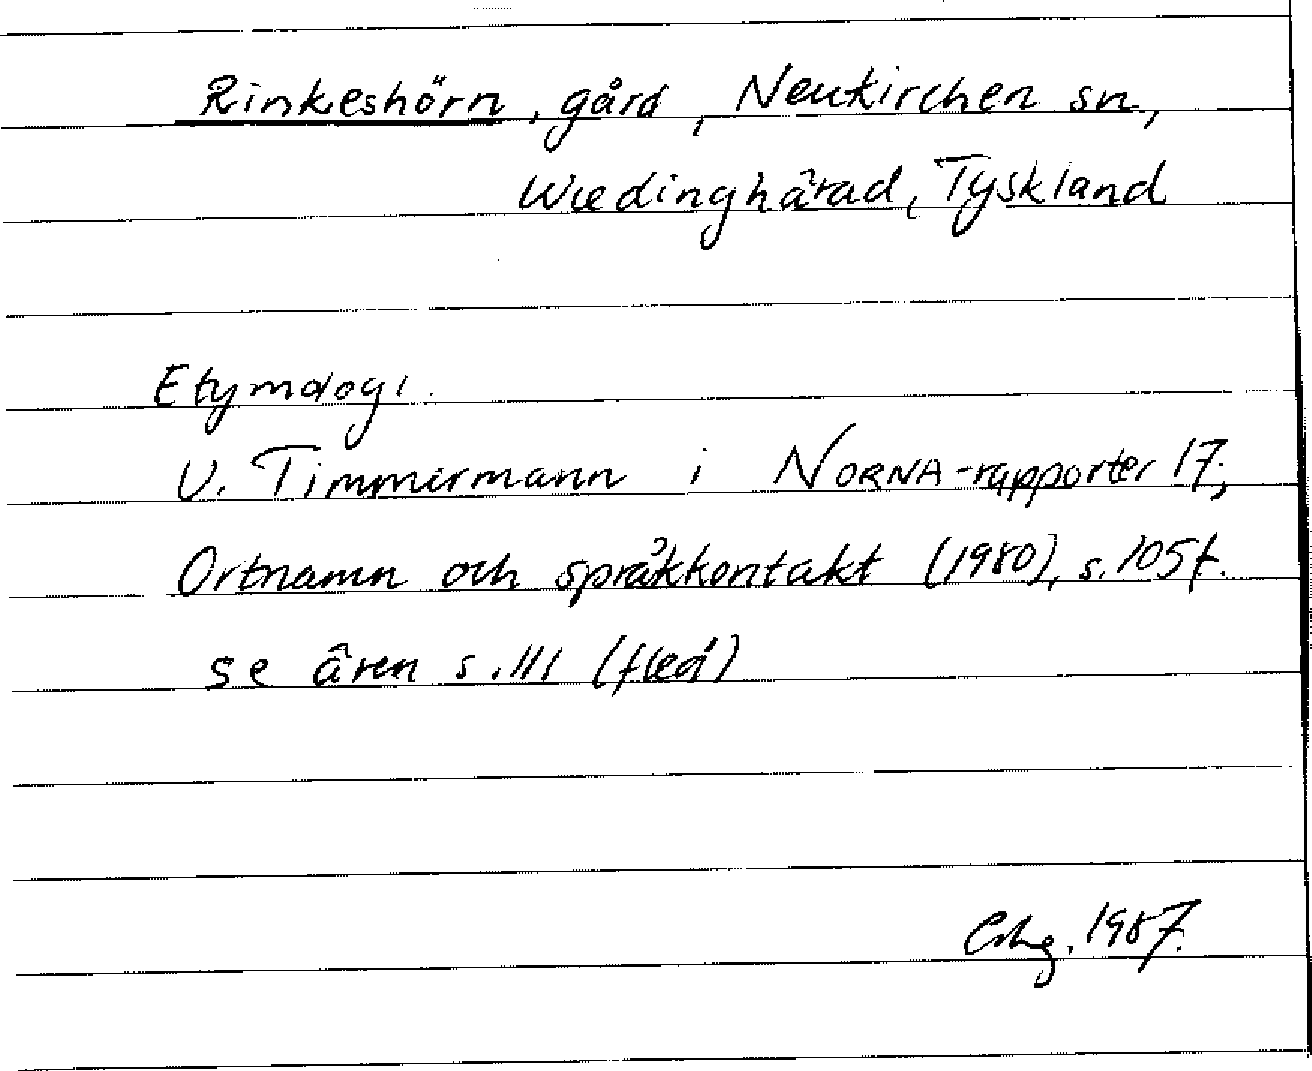 Rinkeshörn, gård, Neukirchen sn,
Wiedinghärad, Tyskland
Etymologi.
U. Timmermann i NORNA-rapporter 17,
Ortnamn och språkkontakt (1980), s. 105 f.
se även s. 111 (fled)
1987.